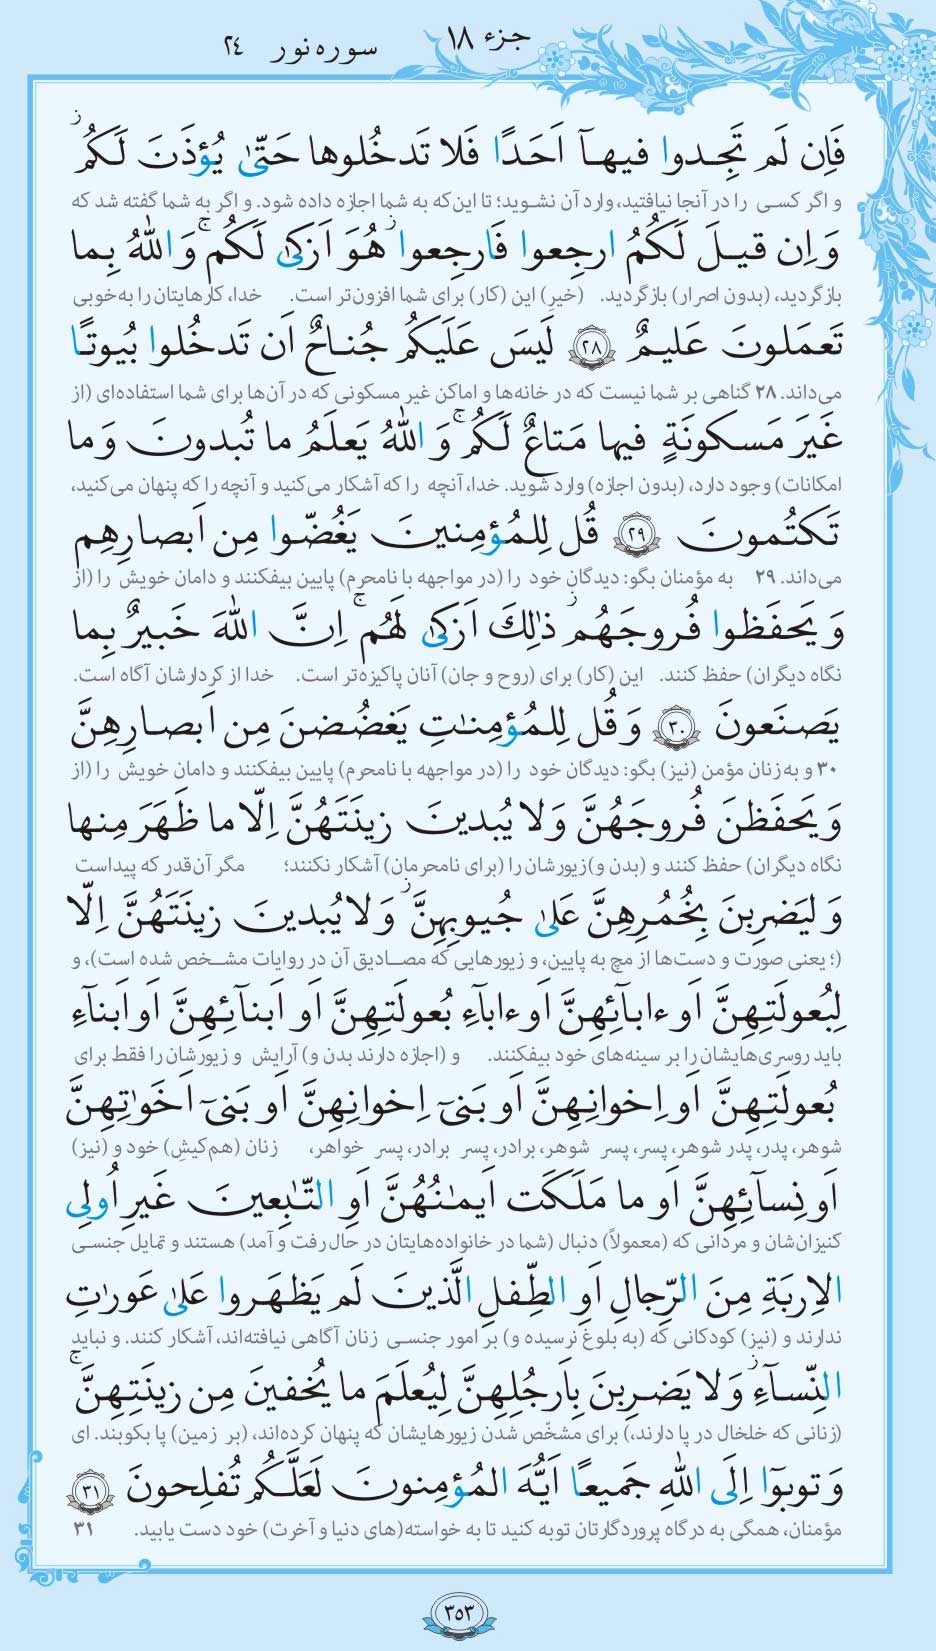 جزء ۱۸
سوره نور ۲۴
فَاِن لَم تَجِدوا فیهآ اَحَدًا فَلا تَدخُلوها حَتّیٰ یُؤذَنَ لَکُم ۖ ز
و اگر کسی را در آنجا نیافتید، وارد آن نشوید؛ تا این‌که به شما اجازه داده شود. و اگر به شما گفته شد که
وَ اِن قیلَ لَکُمُ ارجِعوا فَارجِعوا ز هُوَ اَزکیٰ لَکُم ج وَ اللّٰهُ بِما
بازگردید، (بدون اصرار) بازگردید. (خیرِ) این (کار) برای شما افزون‌تر است. خدا، کارهایتان را به‌خوبی
تَعمَلونَ عَلیمٌ ۲۸ لَیسَ عَلَیکُم جُناحٌ اَن تَدخُلوا بُیوتًا
می‌داند. ۲۸ گناهی بر شما نیست که در خانه‌ها و اماکن غیر مسکونی که در آن‌ها برای شما استفاده‌ای (از
غَیرَ مَسکونَةٍ فیها مَتاعٌ لَکُم ج وَ اللّٰهُ یَعلَمُ ما تُبدونَ وَ ما
امکانات) وجود دارد، (بدون اجازه) وارد شوید. خدا، آنچه را که آشکار می‌کنید و آنچه را که پنهان می‌کنید،
تَکتُمونَ ۲۹ قُل لِلمُؤمِنینَ یَغُضّوا مِن اَبصارِهِم
می‌داند. ۲۹ به مؤمنان بگو: دیدگان خود را (در مواجهه با نامحرم) پایین بیفکنند و دامان خویش را (از
وَ یَحفَظوا فُروجَهُم ز ذٰلِکَ اَزکیٰ لَهُم ج اِنَّ اللّٰهَ خَبیرٌ بِما
نگاه دیگران) حفظ کنند. این (کار) برای (روح و جان) آنان پاکیزه‌تر است. خدا از کردارشان آگاه است.
یَصنَعونَ ۳۰ وَ قُل لِلمُؤمِنٰتِ یَغضُضنَ مِن اَبصارِهِنَّ
۳۰ و به زنان مؤمن (نیز) بگو: دیدگان خود را (در مواجهه با نامحرم) پایین بیفکنند و دامان خویش را (از
وَ یَحفَظنَ فُروجَهُنَّ وَ لا یُبدینَ زینَتَهُنَّ اِلّا ما ظَهَرَ مِنها
نگاه دیگران) حفظ کنند و (بدن و) زیورشان را (برای نامحرمان) آشکار نکنند؛ مگر آن‌قدر که پیداست
وَ لیَضرِبنَ بِخُمُرِهِنَّ عَلیٰ جُیوبِهِنَّ ز وَ لا یُبدینَ زینَتَهُنَّ اِلّا
(؛ یعنی صورت و دست‌ها از مچ به پایین، و زیورهایی که مصادیق آن در روایات مشخص شده است)، و
لِبُعولَتِهِنَّ اَو ءابآئِهِنَّ اَو ءابآءِ بُعولَتِهِنَّ اَو اَبنآئِهِنَّ اَو اَبنآءِ
باید روسری‌هایشان را بر سینه‌های خود بیفکنند. و (اجازه دارند بدن و) آرایش و زیورشان را فقط برای
بُعولَتِهِنَّ اَو اِخوانِهِنَّ اَو بَنیٓ اِخوانِهِنَّ اَو بَنیٓ اَخَوٰتِهِنَّ
شوهر، پدر، پدر شوهر، پسر، پسر شوهر، برادر، پسر برادر، پسر خواهر، زنان (هم‌کیشِ) خود و (نیز)
اَو نِسآئِهِنَّ اَو ما مَلَکَت اَیمٰنُهُنَّ اَوِ التّٰبِعینَ غَیرِ اُولِی
کنیزان‌شان و مردانی که (معمولاً) دنبال (شما در خانواده‌هایتان در حال رفت و آمد) هستند و تمایل جنسی
الاِربَةِ مِنَ الرِّجالِ اَوِ الطِّفلِ الَّذینَ لَم یَظهَروا عَلیٰ عَورٰتِ
ندارند و (نیز) کودکانی که (به بلوغ نرسیده و) بر امور جنسی زنان آگاهی نیافته‌اند، آشکار کنند. و نباید
النِّسآءِ ز وَ لا یَضرِبنَ بِاَرجُلِهِنَّ لِیُعلَمَ ما یُخفینَ مِن زینَتِهِنَّ ج
(زنانی که خلخال در پا دارند،) برای مشخّص شدن زیورهایشان که پنهان کرده‌اند، (بر زمین) پا بکوبند. ای
وَ توبوٓا اِلَی اللّٰهِ جَمیعًا اَیُّهَ المُؤمِنونَ لَعَلَّکُم تُفلِحونَ ۳۱
مؤمنان، همگی به درگاه پروردگارتان توبه کنید تا به خواسته(های دنیا و آخرت) خود دست یابید. ۳۱
۳۵۳